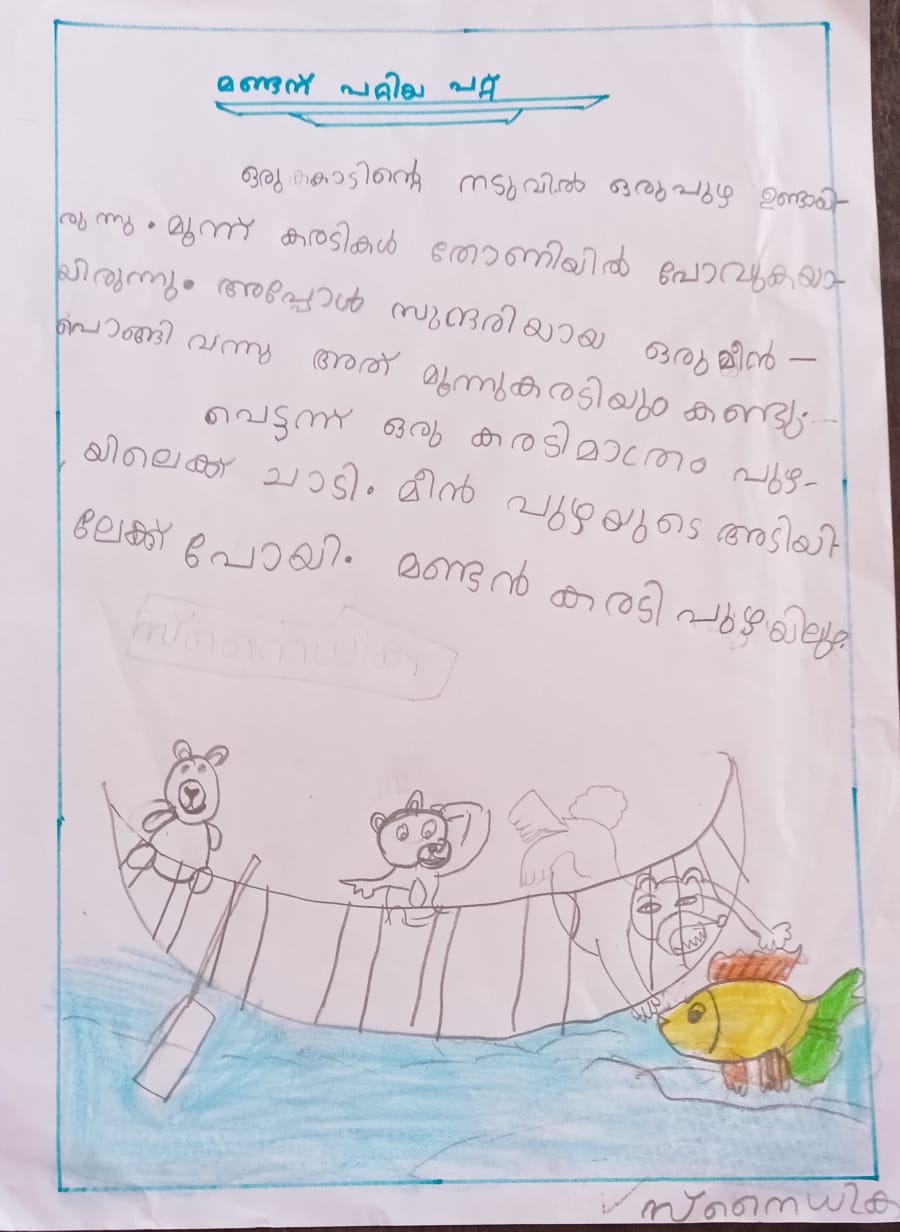 മണ്ടന് പറ്റിയ പറ്റ്
ഒരു കാടിന്റെ നടുവിൽ ഒരുപുഴ ഉണ്ടായി-
രുന്നു. മൂന്ന് കരടികൾ തോണിയിൽ പോവുകയാ-
യിരുന്നു. അപ്പോൾ സുന്ദരിയായ ഒരു മീൻ —
പൊങ്ങി വന്നു അത് മൂന്നുകരടിയും കണ്ടു.
പെട്ടന്ന് ഒരു കരടിമാത്രം പുഴ-
യിലെക്ക് ചാടി. മീൻ പുഴയുടെ അടിയി
ലേക്ക് പോയി. മണ്ടൻ കരടി പുഴയിലും.
സ്നൈധിക
സ്നൈധിക